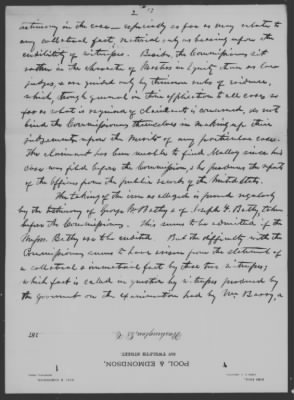 2
testimony in the case — especially so far as may relate to
any collateral fact, material only as bearing upon the
credibility of witnesses. Besides the Commissioners sit
rather in the character of Masters in Equity than as law
judges, & are guided only by technical rules of evidence,
which, though general in their application to all cases so
far as what is required of claimants is concerned, do not
bind the Commissioners themselves in making up their
judgements upon the merits of any particular case.
The claimant has been unable to find Mallory since his
case was filed before the Commission, & he produces the report
of the Officers from the public records of the United States.
The taking of the corn as alleged is proved regularly
by the testimony of George W. Batby & of Joseph S. Batby, taken
before the Commissioners. This seems to be admitted, if the
Messrs. Batby are to be credited. But the difficulty with the
Commissioners seems to have arisen from the statement of
a collateral & immaterial fact by these two witnesses;
which fact is called in question by witnesses produced by
the Government on the examination had by Mr.
187
Washington, D. C.
POOL & EDMONDSON,
TWELFTH STREET.
JOHN POOL,